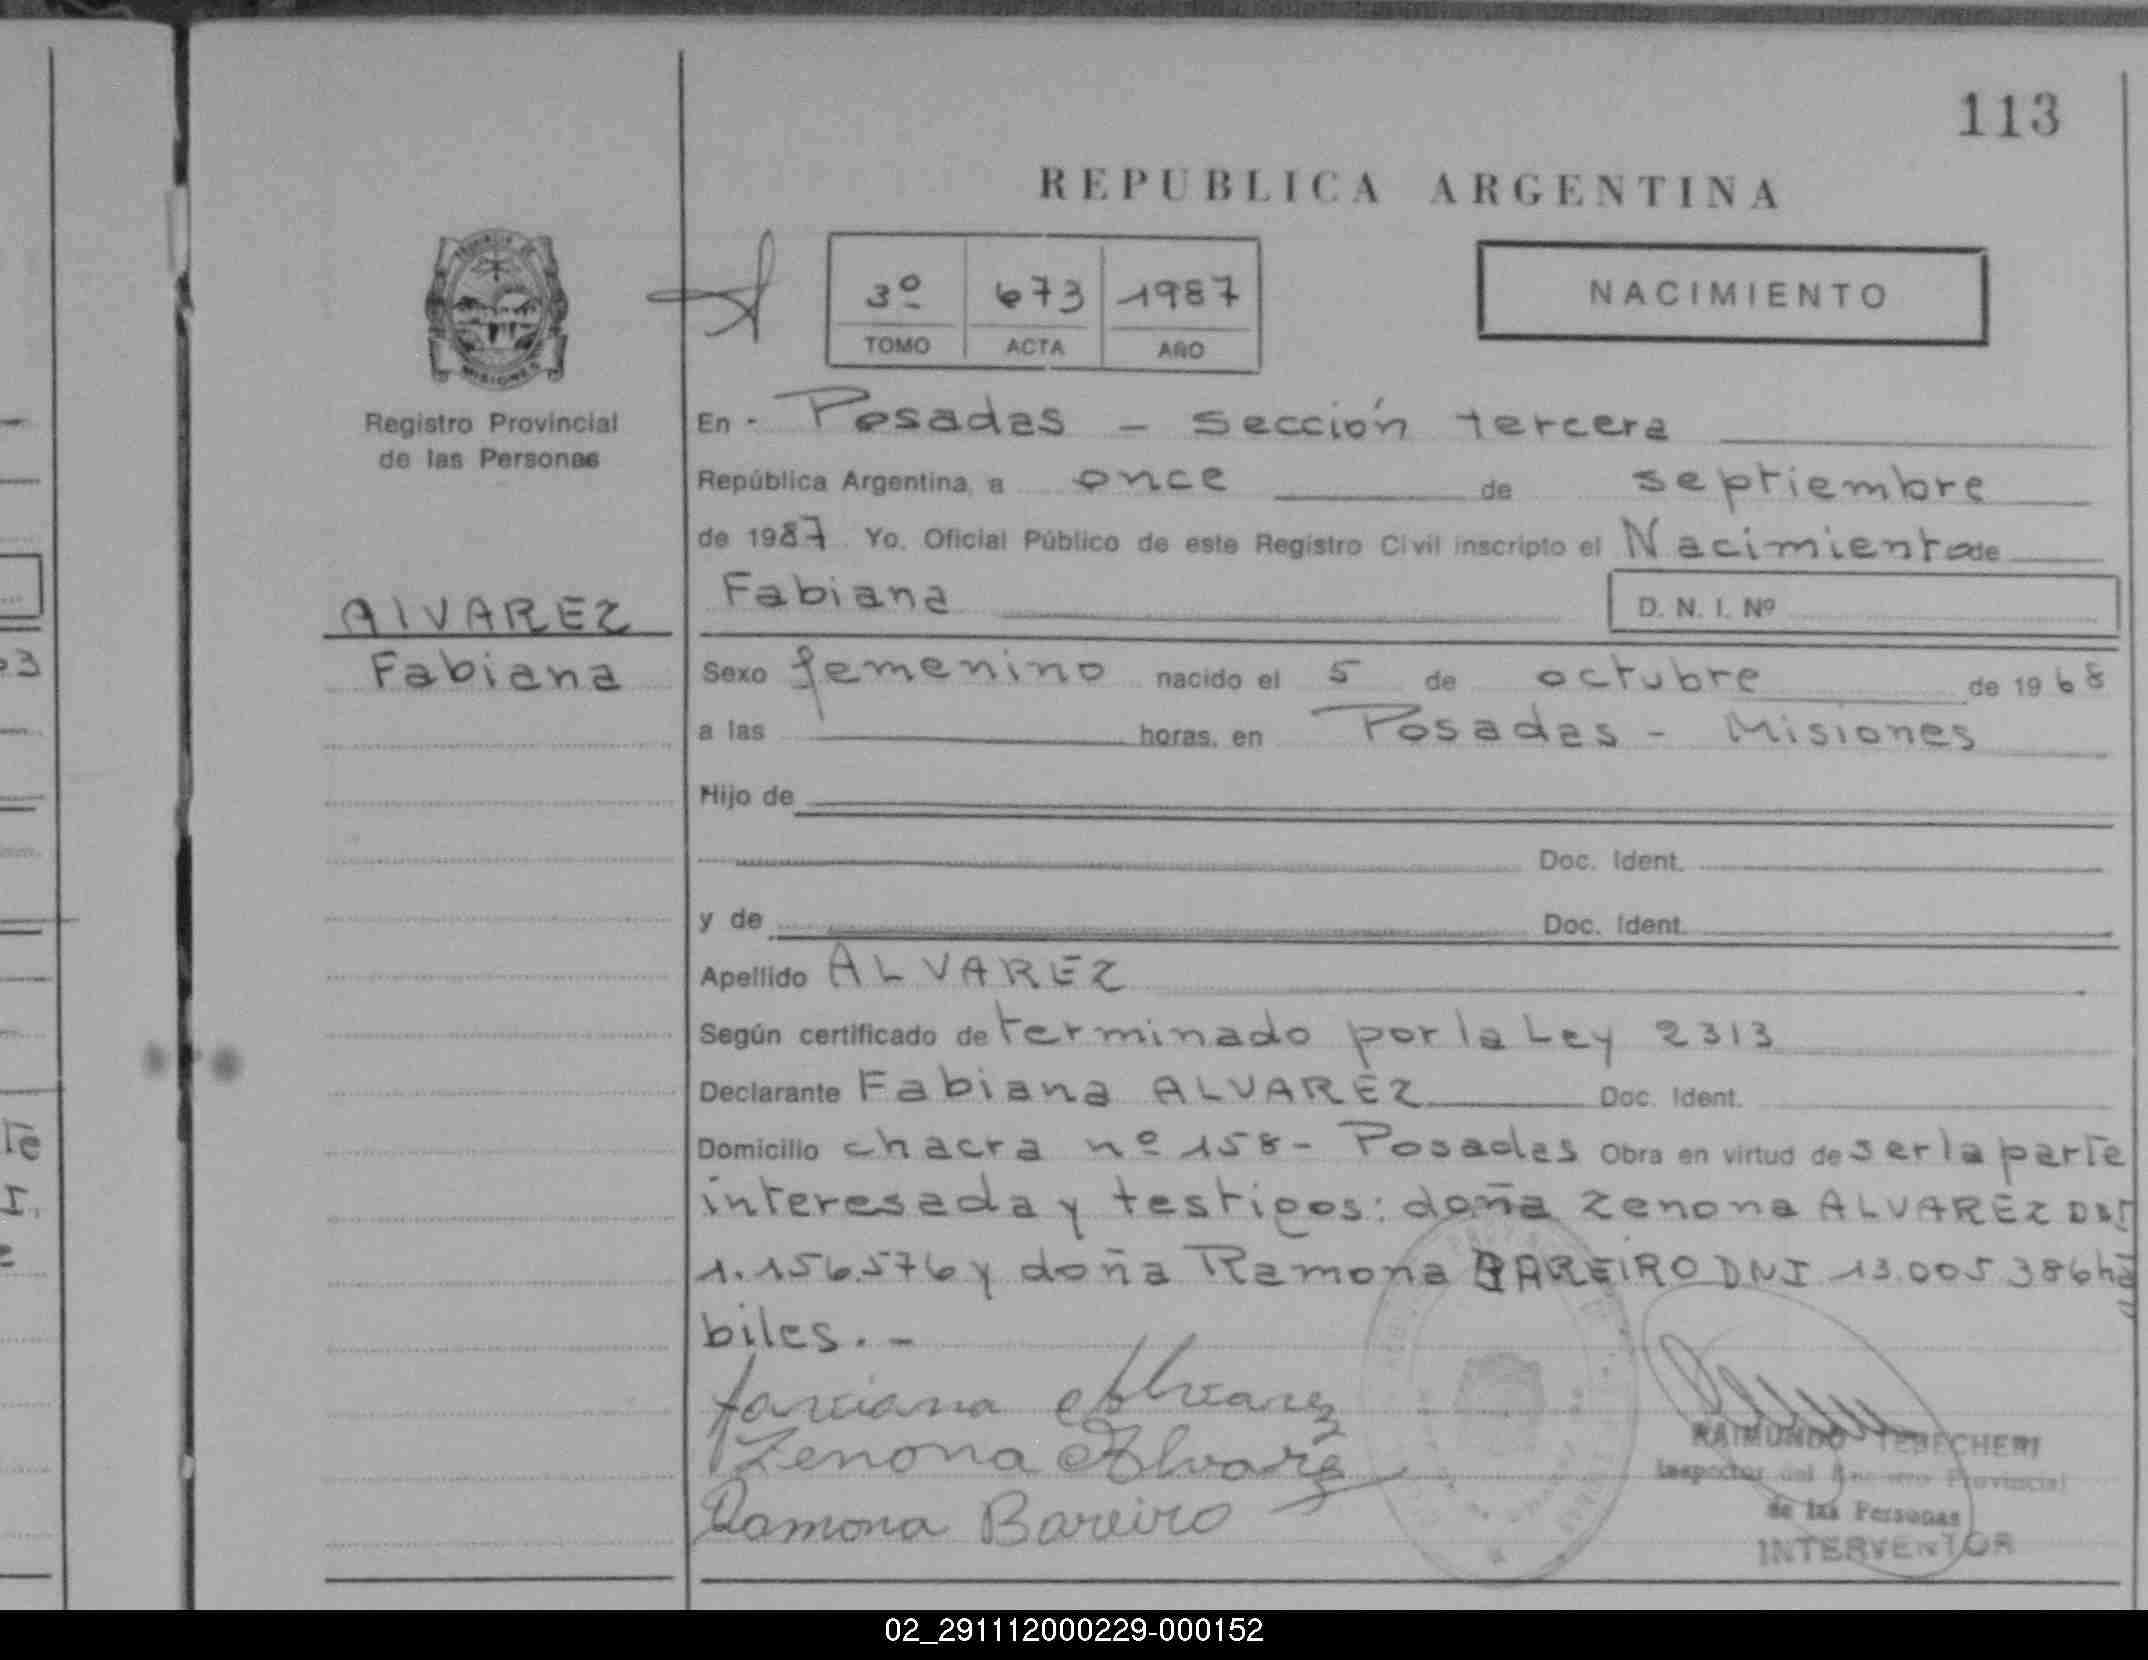 113
REPUBLICA ARGENTINA
3º 673 1987
TOMO ACTA AÑO
NACIMIENTO
MISIONES
Registro Provincial
de las Personas
ALVAREZ
Fabiana
En - Posadas - sección tercera
República Argentina, a once de septiembre
de 1987. Yo, Oficial Público de este Registro Civil inscripto el Nacimiento de
Fabiana D. N. I. Nº
Sexo femenino nacido el 5 de octubre de 1968
a las horas, en Posadas - Misiones
Hijo de
Doc. Ident.
y de Doc. Ident.
Apellido ALVAREZ
Según certificado determinado por la Ley 2313
Declarante Fabiana ALVAREZ Doc. Ident.
Domicilio chacra nº 158 - Posadas Obra en virtud de ser la parte
interesada y testigos: doña Zenona ALVAREZ DNI
1.156.576 y doña Ramona BAREIRO DNI 13.005.386 há
biles. -
faviana Alvarez
Zenona Alvarez
Ramona Bareiro
RAIMUNDO TEBECHERI
Inspector del Registro Provincial
de las Personas
INTERVENTOR
02_291112000229-000152